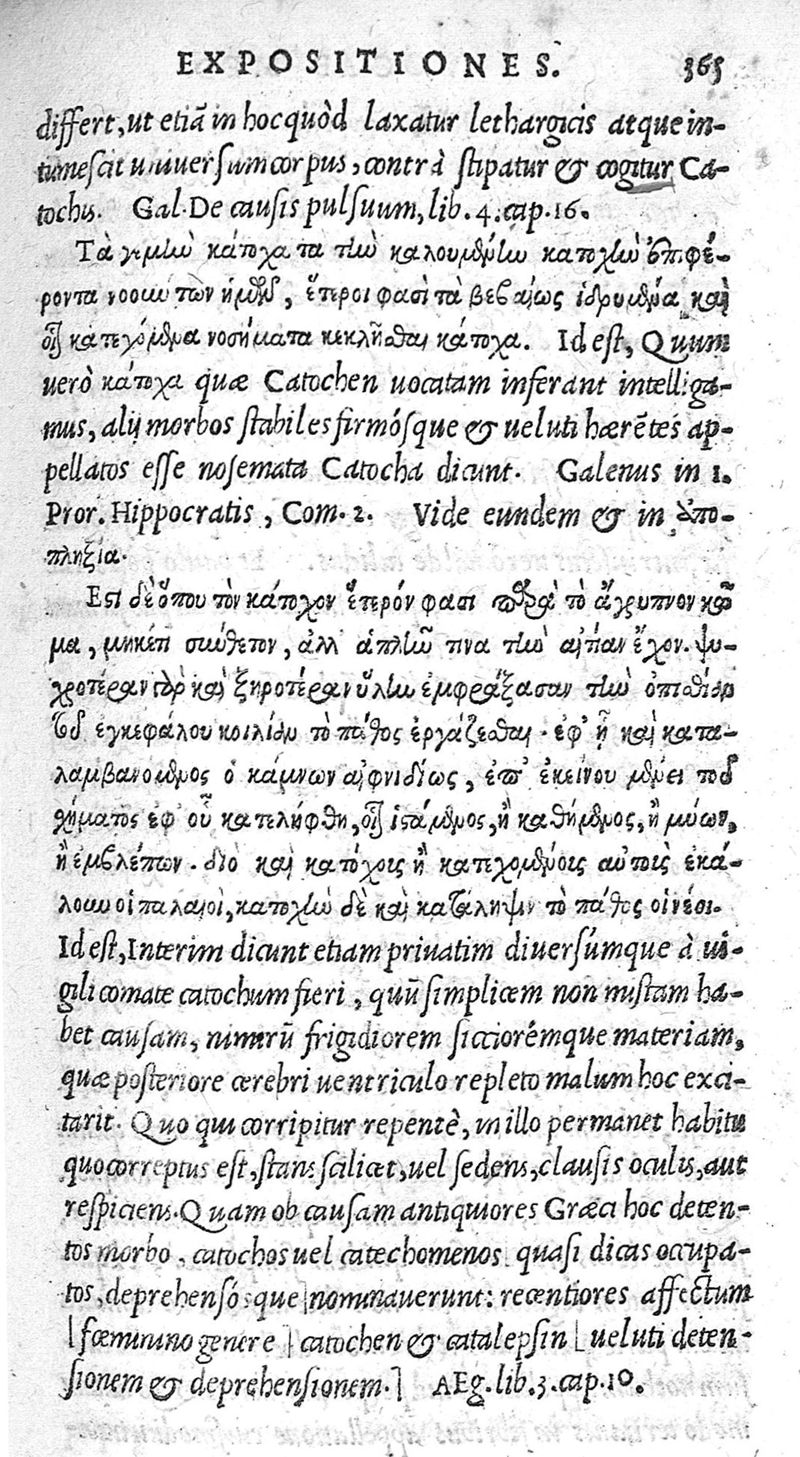 EXPOSITIONES. 365
differt, ut etiā in hoc quòd laxatur lethargicis atque in-
tumescit uniuersum corpus, contrà stipatur & cogitur Ca-
tochis. Gal. De causis pulsuum, lib. 4. cap. 16.
Τὰ γεμὶω κάτοχα τα τίω καλουμένίω κατοχίω ἐπιφέ-
ροντα νοουντων ἡμῶν, ἕτεροι φασὶ τὰ βεβαίως ἱδρυμένα καὶ
οἷον κατεχόμενα νοσήματα κεκλῆσθαι κάτοχα. Id est, Quum
uerò κάτοχα quæ Catochen uocatam inferant intelliga-
mus, alij morbos stabiles firmósque & ueluti hærētes ap-
pellatos esse nosemata Catocha dicunt. Galenus in 1.
Pror. Hippocratis, Com. 2. Vide eundem & in ἀπο-
πληξία.
Εστι δὲ ὅπου τὸν κάτοχον ἕτερόν φασι παρὰ τὸ ἄγρυπνον κῶ
μα, μηκέτι σύνθετον, ἀλλ' ἁπλῶ τινα τὴν αἰτίαν ἔχον. ψυ-
χροτέραν γὰρ καὶ ξηροτέραν ὕλην ἐμφράξασαν τὴν ὀπισθίαν
τοῦ ἐγκεφάλου κοιλίαν τὸ πάθος ἐργάζεσθαι. ἐφ' ᾗ καὶ κατα-
λαμβανομενος ὁ κάμνων αἰφνιδίως, ἐπ' ἐκείνου μένει τοῦ
σχήματος ἐφ' οὗ κατελήφθη, οἷον ἱστάμενος, ἢ καθήμενος, ἢ μύων,
ἢ ἐμβλέπων. διὸ καὶ κατόχοις ἢ κατεχομένοις αὐτοὶς ἐκά-
λουν οἱ παλαιοὶ, κατοχὴν δὲ καὶ κατάληψιν τὸ πάθος οἱ νέοι.
Id est, Interim dicunt etiam priuatim diuersúmque à ui-
gili comate catochum fieri, quū simplicem non mistam ha-
bet causam, nimirū frigidiorem sicciorémque materiam,
quæ posteriore cerebri uentriculo repleto malum hoc exci-
tarit. Quo qui corripitur repentè, in illo permanet habitu
quo correptus est, stans scilicet, uel sedens, clausis oculis, aut
respiciens. Quam ob causam antiquiores Græci hoc deten-
tos morbo, catochos uel catechomenos [quasi dicas occupa-
tos, deprehensósque] nominauerunt: recentiores affectum
[fœminino genere] catochen & catalepsin [ueluti deten-
sionem & deprehensionem.] AEg. lib. 3. cap. 10.